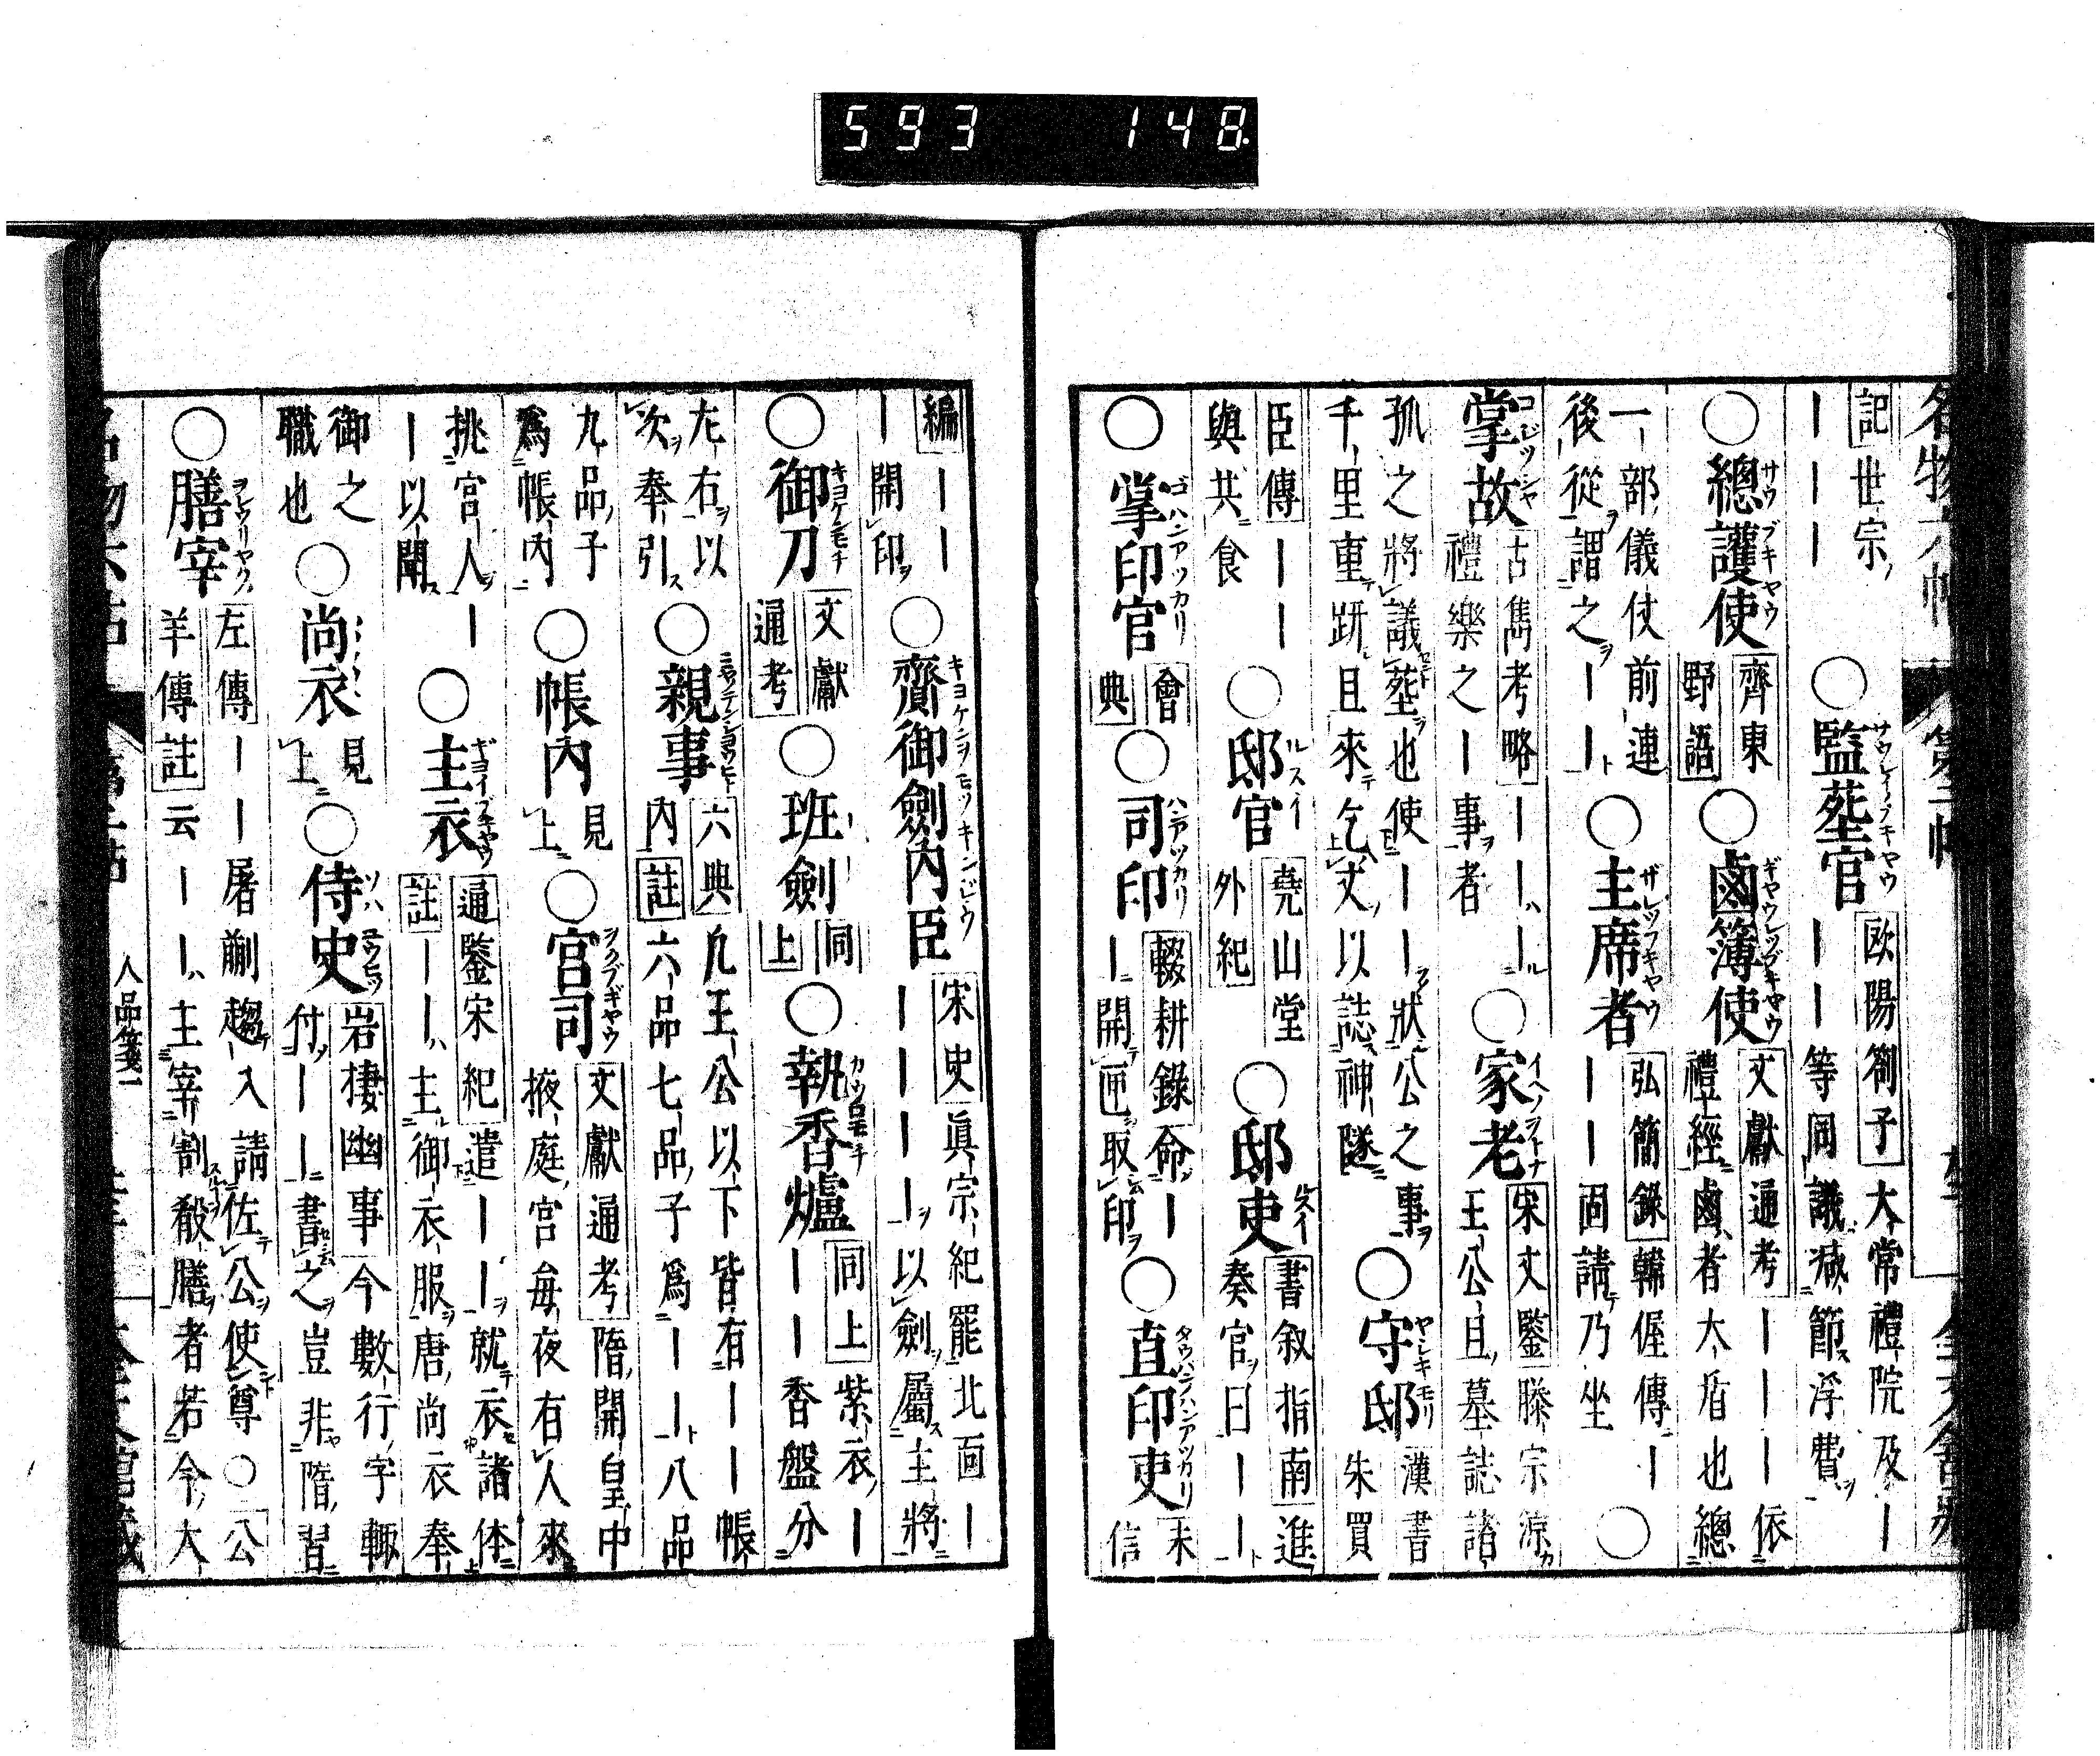 593 148
記世宗
｜｜｜○監塟官｜｜｜等同議減節浮費
欧陽劄子大常禮院及｜
○總護使齊東野語○鹵簿使文獻通考｜｜｜依
禮經鹵者大盾也總
一部儀仗前連
後從謂之｜｜○主席者弘簡錄韓偓傳｜
｜｜｜固請乃坐○
掌故古雋考略｜｜｜
禮樂之｜事者○家老宋文鑒滕宗涼
王公且墓誌諸
孤之將議塟也使｜｜｜狀公之事
千里重趼且來乞文以誌神隧○守邸漢書
朱買
臣傳｜｜
與共食○邸官堯山堂外紀○邸吏書叙指南進
奏官曰｜｜
○掌印官會典○司印輟耕錄命｜
｜開匣取印○直印吏宋
信
編｜｜
｜開印○齎御劍内臣宋史眞宗紀罷北面｜
｜｜｜｜以劍屬主將
○御刀文獻通考○班劍同上○執香爐同上紫衣｜
｜｜香盤分
左右以
次奉引○親事六典内註九王公以下皆有｜｜帳
六品七品子爲｜｜八品
九品子
爲帳内○帳内見上○宮司文獻通考隋開皇中
掖庭宮毎夜有人來
挑宮人｜
｜以聞○主衣通鑒宋紀遣｜｜就衣諸体
註｜｜主御衣服唐尚衣奉
御之
職也○尚衣見上○侍史岩棲幽事今數行字輙
付｜｜書之豈非隋習
○膳宰左傳｜｜屠蒯趨入請佐公使尊○公
羊傳註云｜｜主宰割殺膳者若今大
人品箋一